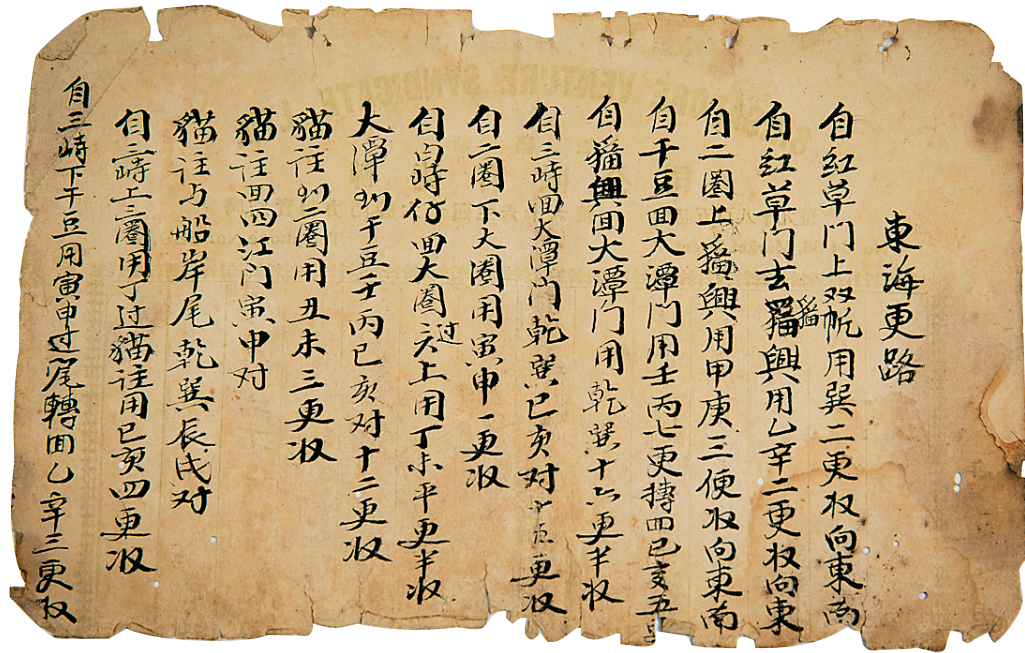 東海更路
自红草门上双帆用巽二更收向東南
自红草门去猫興用乙辛二更收向東
猫
自二圈上猫興用甲庚三便收向東南
自干豆回大潭门用壬丙七更轉回巳亥五
自猫興回大潭门用乾巽十六更半收
自三峙回大潭门乾巽巳亥对十五更收
自二圈下大圈用寅申一更收
自白峙仔回大圈六上用丁未平更半收
过
大潭刘干豆壬丙巳亥对十二更收
猫註刘二圈用丑未三更收
猫註回四江门寅申对
猫註与船岸尾乾巽辰戌对
自三峙上三圈用丁过猫註用巳亥四更收
自三峙下干豆用寅申过尾轉回乙辛三更收